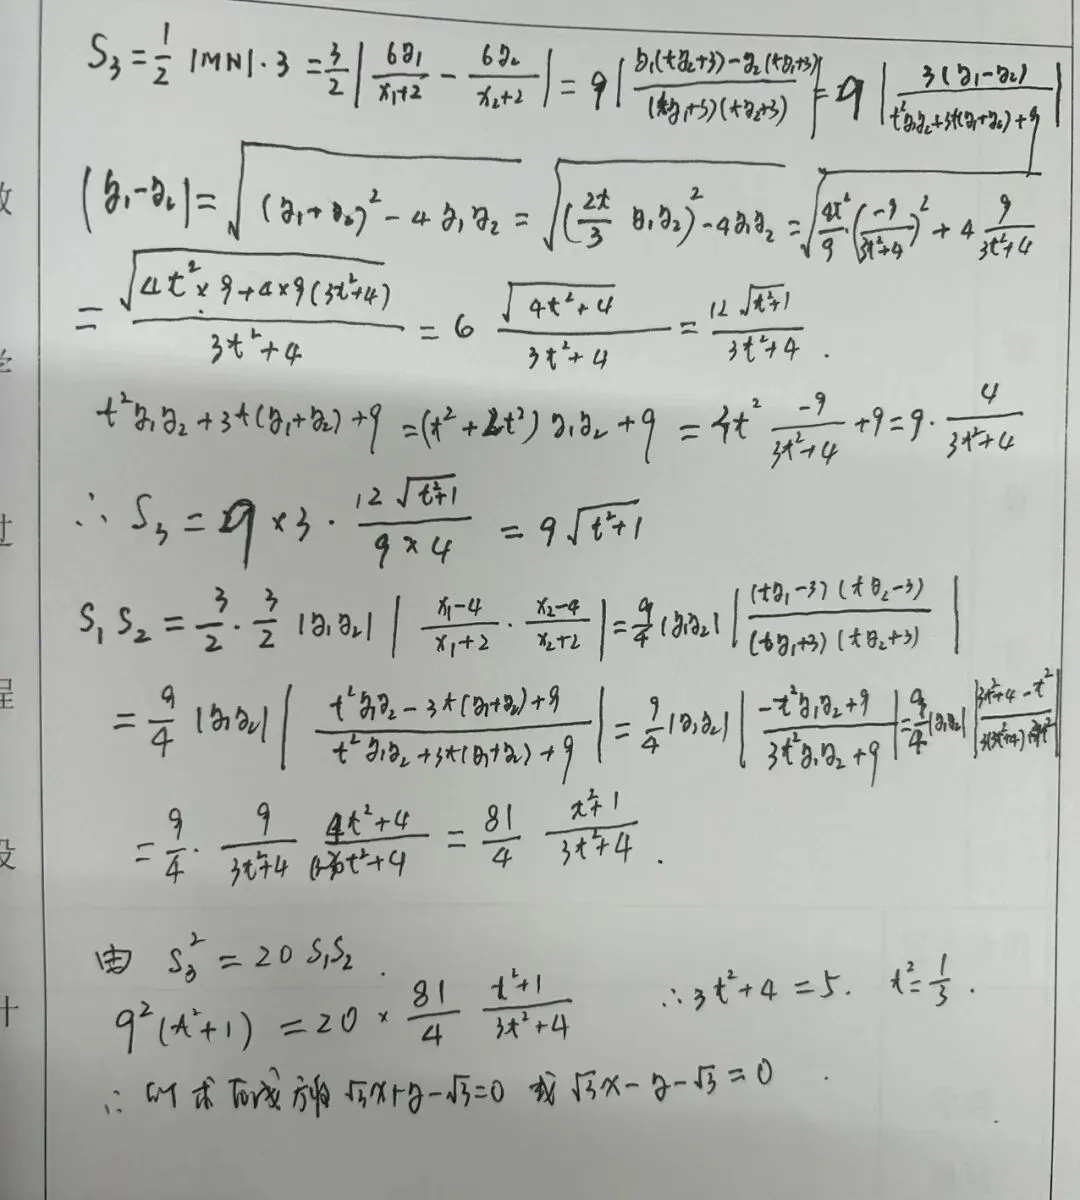 S₃ = 1/2 |MN|·3 = 3/2 | 6y₁/(x₁+2) − 6y₂/(x₂+2) | = 9 | (y₁(ty₂+3) − y₂(ty₁+3)) / ((ty₁+3)(ty₂+3)) | = 9 | 3(y₁−y₂) / (t²y₁y₂+3t(y₁+y₂)+9) |
|y₁−y₂| = √((y₁+y₂)² − 4y₁y₂) = √((2t/3 y₁y₂)² − 4y₁y₂) = √(4t²/9 · (−9/(3t²+4))² + 4 9/(3t²+4))
= √(4t²×9+4×9(3t²+4)) / (3t²+4) = 6 √(4t²+4) / (3t²+4) = 12√(t²+1) / (3t²+4) .
t²y₁y₂ + 3t(y₁+y₂) + 9 = (t²+2t²) y₁y₂ + 9 = 3t² −9/(3t²+4) + 9 = 9· 4/(3t²+4)
∴ S₃ = 9 × 3 · 12√(t²+1) / (9×4) = 9√(t²+1)
S₁S₂ = 3/2 · 3/2 |y₁y₂| | (x₁−4)/(x₁+2) · (x₂−4)/(x₂+2) | = 9/4 |y₁y₂| | (ty₁−3)(ty₂−3) / ((ty₁+3)(ty₂+3)) |
= 9/4 |y₁y₂| | (t²y₁y₂ − 3t(y₁+y₂)+9) / (t²y₁y₂+3t(y₁+y₂)+9) | = 9/4 |y₁y₂| | (−t²y₁y₂+9) / (3t²y₁y₂+9) | = 9/4 |y₁y₂|
= 9/4 · 9/(3t²+4) (4t²+4)/ = 81/4 (t²+1)/(3t²+4) .
由 S₃² = 20 S₁S₂ .
9²(t²+1) = 20 × 81/4 (t²+1)/(3t²+4) ∴ 3t²+4 = 5. t² = 1/3 .
∴ 所求直线方程 √3x+y−√3=0 或 √3x−y−√3=0 .
学
过
程
设
计